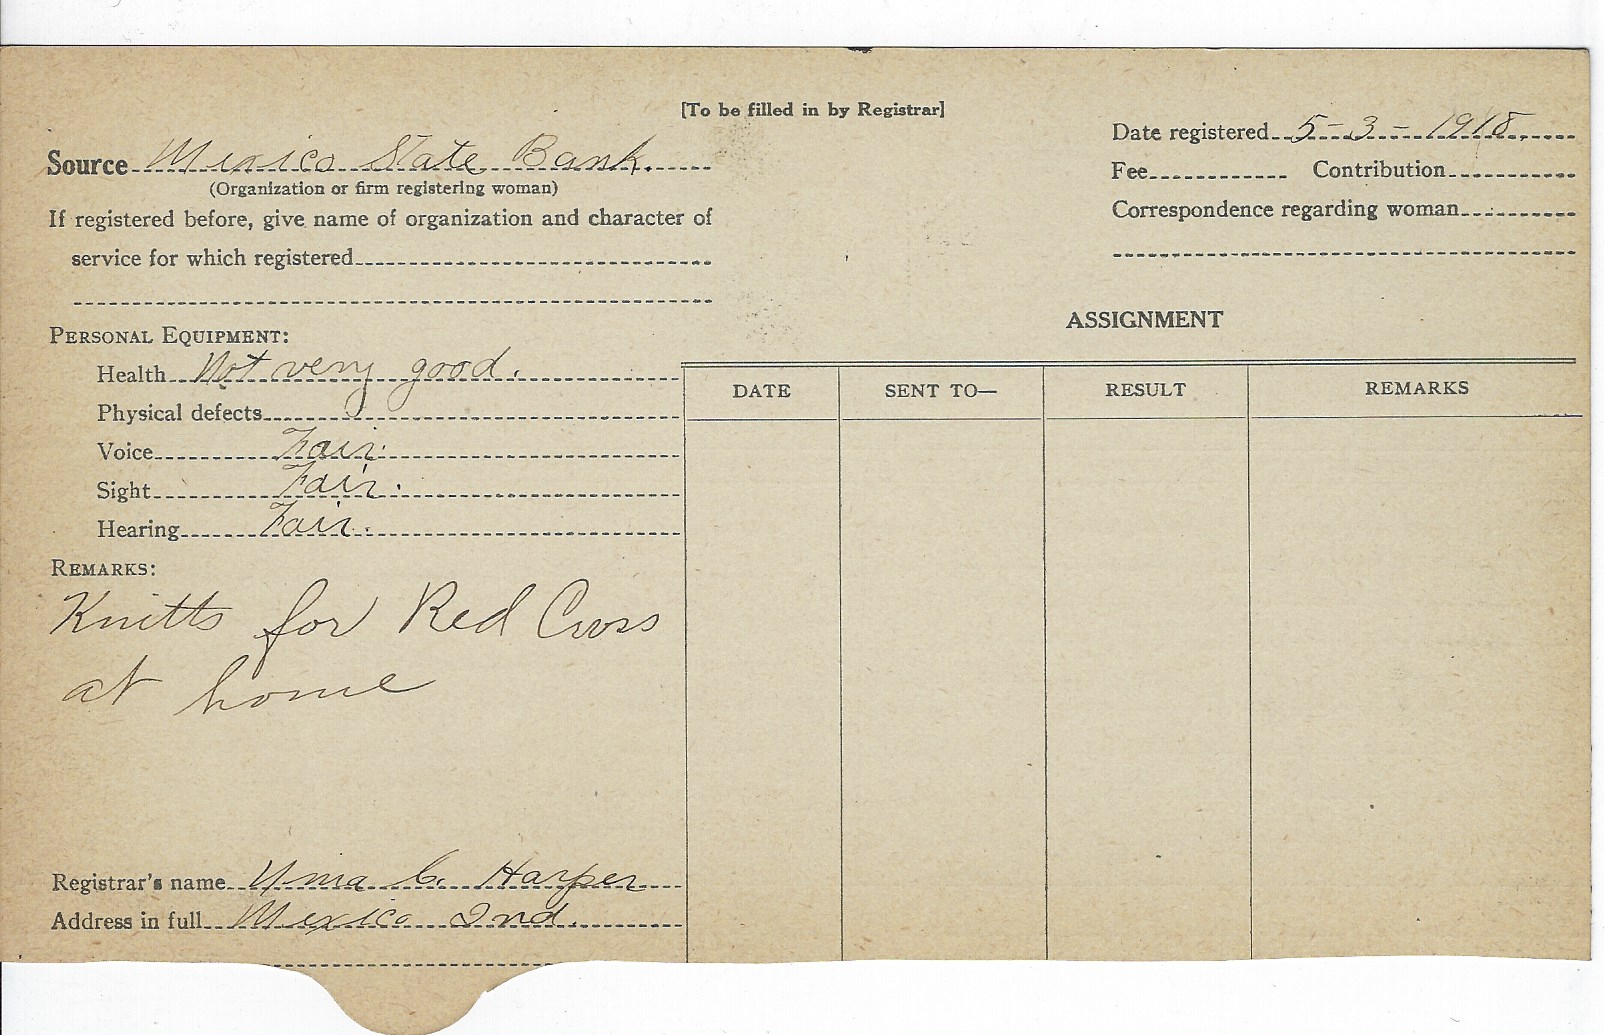 [To be filled in by Registrar]
Source Mexico State Bank.
(Organization or firm registering woman)
If registered before, give name of organization and character of
service for which registered
Date registered 5-3-1918.
Fee Contribution
Correspondence regarding woman
PERSONAL EQUIPMENT:
Health Not very good.
Physical defects
Voice Fair.
Sight Fair.
Hearing Fair.
REMARKS:
Knitts for Red Cross
at home
Registrar's name C. Harper
Address in full Mexico Ind.
ASSIGNMENT
DATE SENT TO— RESULT REMARKS